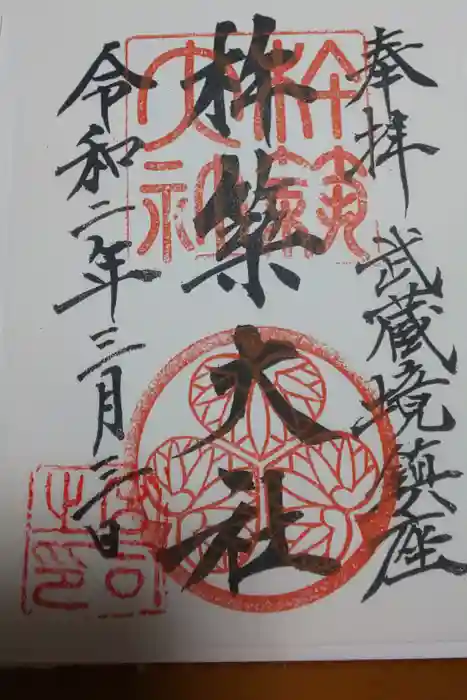 奉拝 武蔵境鎮座
杵築大社
令和二年三月三日
杵築大社